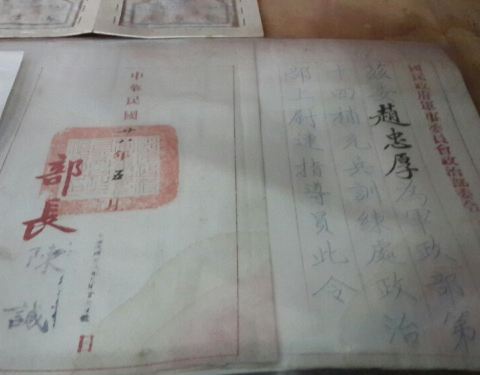 國民政府軍事委員會政治部委令
茲委趙忠厚為軍政部第
十四補充兵訓練處政治
部上尉連指導員此令
中華民國廿八年五月
日
部長陳誠